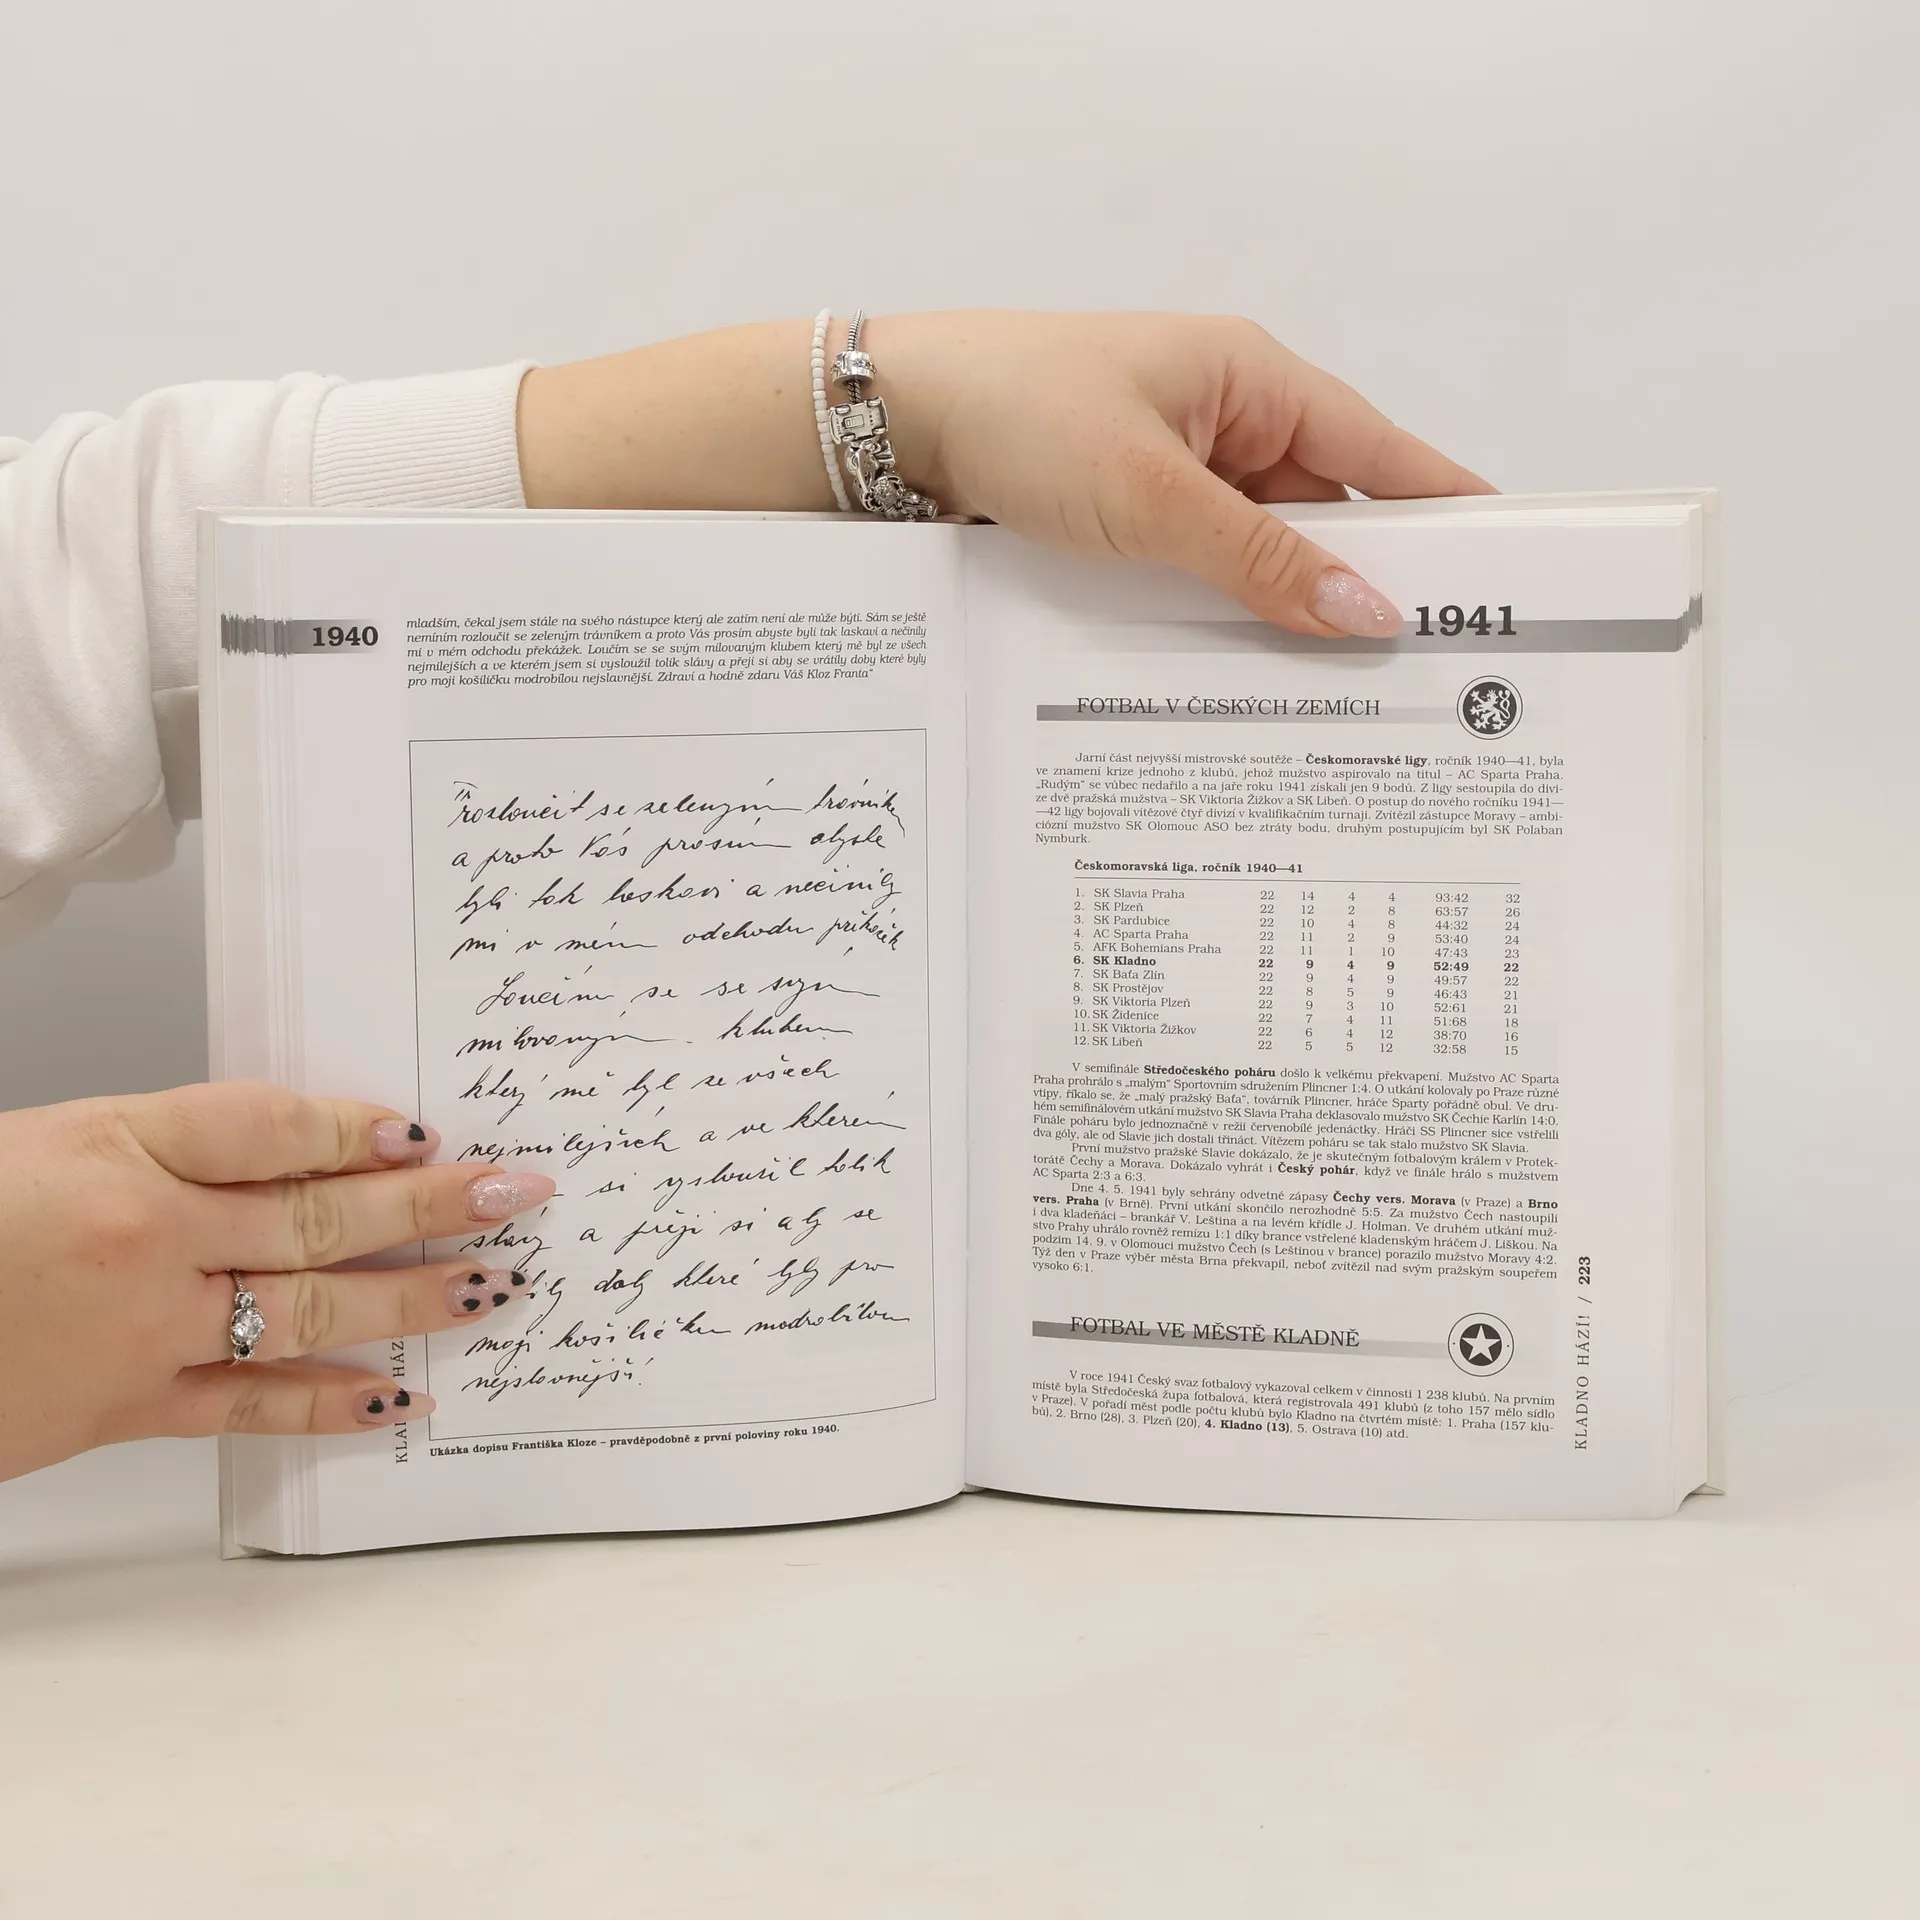 1940
mladším, čekal jsem stále na svého nástupce který ale zatím není ale může býti. Sám se ještě
nemíním rozloučit se zeleným trávníkem a proto Vás prosím abyste byli tak laskavi a nečinily
mi v mém odchodu překážek. Loučím se se svým milovaným klubem který mě byl ze všech
nejmilejších a ve kterém jsem si vysloužil tolik slávy a přeji si aby se vrátily doby které byly
pro moji košiličku modrobílou nejslavnější. Zdraví a hodně zdaru Váš Kloz Franta“
rozloučit se zeleným trávníke
a proto Vás prosím abyste
byli tak laskavi a nečinily
mi v mém odchodu překážek
Loučím se se svým
milovaným klubem
který mě byl ze všech
nejmilejších a ve kterém
si vysloužil tolik
slávy a přeji si aby se
doby které byly pro
moji košiličku modrobílou
nejslavnější.
Ukázka dopisu Františka Kloze – pravděpodobně z první poloviny roku 1940.
1941
FOTBAL V ČESKÝCH ZEMÍCH
Jarní část nejvyšší mistrovské soutěže – Českomoravské ligy, ročník 1940—41, byla
ve znamení krize jednoho z klubů, jehož mužstvo aspirovalo na titul – AC Sparta Praha.
„Rudým“ se vůbec nedařilo a na jaře roku 1941 získali jen 9 bodů. Z ligy sestoupila do divi-
ze dvě pražská mužstva – SK Viktoria Žižkov a SK Libeň. O postup do nového ročníku 1941—
—42 ligy bojovali vítězové čtyř divizí v kvalifikačním turnaji. Zvítězil zástupce Moravy – ambi-
ciózní mužstvo SK Olomouc ASO bez ztráty bodu, druhým postupujícím byl SK Polaban
Nymburk.
Českomoravská liga, ročník 1940—41
1. SK Slavia Praha 22 14 4 4 93:42 32
2. SK Plzeň 22 12 2 8 63:57 26
3. SK Pardubice 22 10 4 8 44:32 24
4. AC Sparta Praha 22 11 2 9 53:40 24
5. AFK Bohemians Praha 22 11 1 10 47:43 23
6. SK Kladno 22 9 4 9 52:49 22
7. SK Baťa Zlín 22 9 4 9 49:57 22
8. SK Prostějov 22 8 5 9 46:43 21
9. SK Viktoria Plzeň 22 9 3 10 52:61 21
10. SK Židenice 22 7 4 11 51:68 18
11. SK Viktoria Žižkov 22 6 4 12 38:70 16
12. SK Libeň 22 5 5 12 32:58 15
V semifinále Středočeského poháru došlo k velkému překvapení. Mužstvo AC Sparta
Praha prohrálo s „malým“ Sportovním sdružením Plincner 1:4. O utkání kolovaly po Praze různé
vtipy, říkalo se, že „malý pražský Baťa“, továrník Plincner, hráče Sparty pořádně obul. Ve dru-
hém semifinálovém utkání mužstvo SK Slavia Praha deklasovalo mužstvo SK Čechie Karlín 14:0.
Finále poháru bylo jednoznačně v režii červenobílé jedenáctky. Hráči SS Plincner sice vstřelili
dva góly, ale od Slavie jich dostali třináct. Vítězem poháru se tak stalo mužstvo SK Slavia.
První mužstvo pražské Slavie dokázalo, že je skutečným fotbalovým králem v Protek-
torátě Čechy a Morava. Dokázalo vyhrát i Český pohár, když ve finále hrálo s mužstvem
AC Sparta 2:3 a 6:3.
Dne 4. 5. 1941 byly sehrány odvetné zápasy Čechy vers. Morava (v Praze) a Brno
vers. Praha (v Brně). První utkání skončilo nerozhodně 5:5. Za mužstvo Čech nastoupili
i dva kladeňáci – brankář V. Leština a na levém křídle J. Holman. Ve druhém utkání muž-
stvo Prahy uhrálo rovněž remízu 1:1 díky brance vstřelené kladenským hráčem J. Liškou. Na
podzim 14. 9. v Olomouci mužstvo Čech (s Leštinou v brance) porazilo mužstvo Moravy 4:2.
Týž den v Praze výběr města Brna překvapil, neboť zvítězil nad svým pražským soupeřem
vysoko 6:1.
FOTBAL VE MĚSTĚ KLADNĚ
V roce 1941 Český svaz fotbalový vykazoval celkem v činnosti 1 238 klubů. Na prvním
místě byla Středočeská župa fotbalová, která registrovala 491 klubů (z toho 157 mělo sídlo
v Praze). V pořadí měst podle počtu klubů bylo Kladno na čtvrtém místě: 1. Praha (157 klu-
bů), 2. Brno (28), 3. Plzeň (20), 4. Kladno (13), 5. Ostrava (10) atd.
KLADNO HÁZÍ! / 223